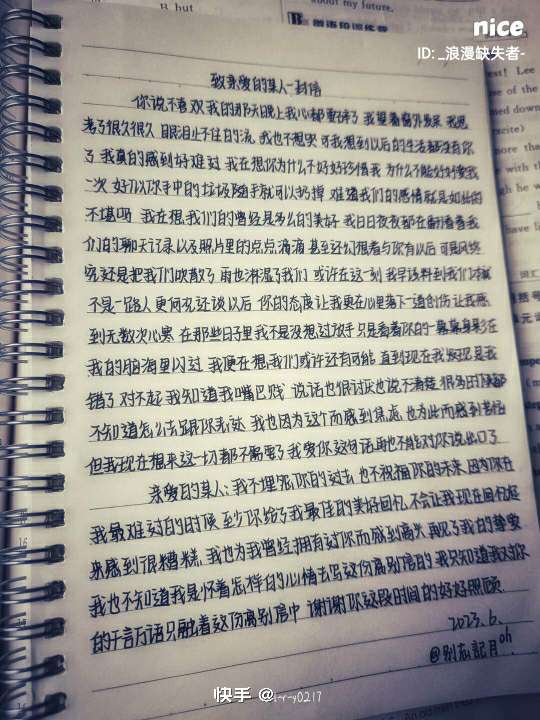 B but
about my future.
nice
ID: _浪漫缺失者-
致亲爱的某人一封信
你说不喜欢我的那天晚上我心都要碎了我望着窗外发呆我思
考了很久很久 眼泪止不住的流 我也不想哭 可我想到以后的生活都没有你
了 我真的感到好难过 我在想你为什么不好好珍惜我 为什么不能好好爱我
一次 好似你手中的垃圾随手就可以扔掉 难道我们的感情就是如此的
不堪吗 我在想我们的曾经是多么的美好 我日日夜夜都在翻看着我
们的聊天记录以及照片里的点点滴滴 甚至还幻想着与你有以后 可是风终
究还是把我们吹散了 雨也淋湿了我们 或许在这一刻我早该料到我们本就
不是一路人 更何况还谈以后 你的态度让我更在心里落下一道创伤让我感
到无数次心寒 在那些日子里我不是没想过放手 只是看着你的一幕幕身影在
我的脑海里闪过 我便在想我们或许还有可能 直到现在我发现是我
错了 对不起 我知道我嘴巴贱 说话也很讨厌也说不清楚 很多时候都
不知道怎么去跟你表达 我也因为这个而感到焦虑 也为此而感到苦恼
但我现在想来这一切都不需要了 我爱你这句话再也不能对你说出口了
亲爱的某人:我不埋怨你的过去 也不祝福你的未来 因为你在
我最难过的时候 至少你给了我最佳的美好回忆 不会让我现在回忆起
来感到很糟糕 我也为我曾经拥有过你而感到高兴 再见了我的挚爱
我也不知道我是怀着怎样的心情去写这份离别信的 我只知道我对你
的千言万语只融着这份离别信中 谢谢你这段时间的好好照顾
2023.6.
@别忘記月oh
快手 @i-r-y0217